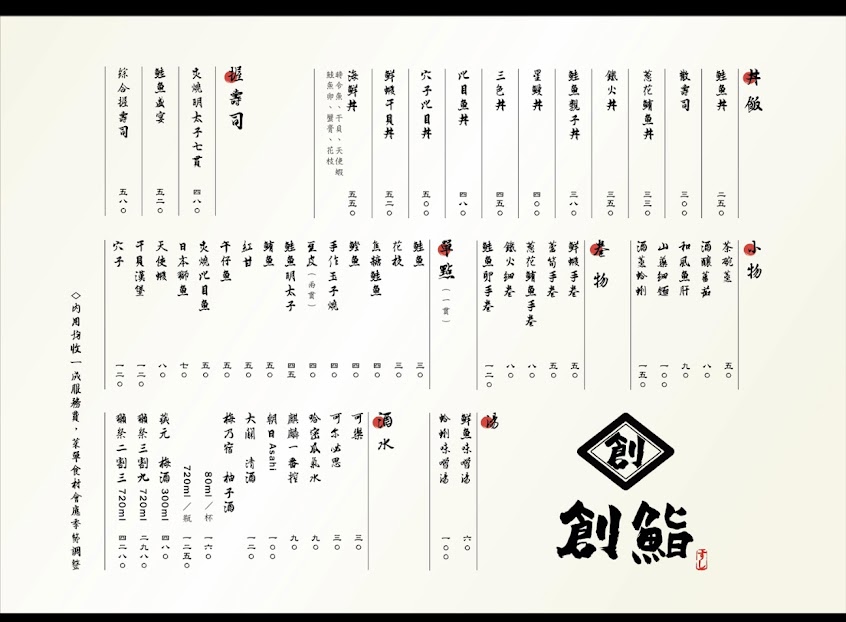 丼飯
鮭魚丼 二五〇
散壽司 三〇〇
蔥花鮪魚丼 三三〇
鐵火丼 三五〇
鮭魚親子丼 三八〇
星鰻丼 四〇〇
三色丼 四五〇
比目魚丼 四八〇
穴子比目丼 五〇〇
鮮蝦干貝丼 五二〇
海鮮丼 五五〇
時令魚、干貝、天使蝦
鮭魚卵、蟹膏、花枝
握壽司
炙燒明太子七貫 四八〇
鮭魚盛宴 五二〇
綜合握壽司 五八〇
小物
茶碗蒸 五〇
酒釀蕃茄 八〇
和風魚肝 九〇
山藥細麵 一〇〇
酒蒸蛤蜊 一五〇
卷物
鮮蝦手卷 五〇
蘆筍手卷 五〇
蔥花鮪魚手卷 八〇
鐵火細卷 八〇
鮭魚卵手卷 一二〇
單點(一貫)
鮭魚 三〇
花枝 三〇
焦糖鮭魚 四〇
鰹魚 四〇
手作玉子燒 四〇
豆皮(兩貫) 四〇
鮭魚明太子 四五
鮪魚 五〇
紅甘 五〇
午仔魚 五〇
炙燒比目魚 五〇
日本鰤魚 七〇
天使蝦 八〇
干貝漢堡 一二〇
穴子 一二〇
湯
鮮魚味噌湯 六〇
蛤蜊味噌湯 一〇〇
酒水
可樂 三〇
可爾必思 三〇
哈密瓜氣水 九〇
麒麟一番搾 九〇
朝日Asahi 一〇〇
大關 清酒 一二〇
梅乃宿 柚子酒
80ml／杯 一六〇
720ml／瓶 一二五〇
荻元 梅酒300ml 四八〇
獺祭三割九720ml 二九八〇
獺祭二割三720ml 四二八〇
◇內用酌收一成服務費，菜單食材會應季節調整
創
創鮨
すし